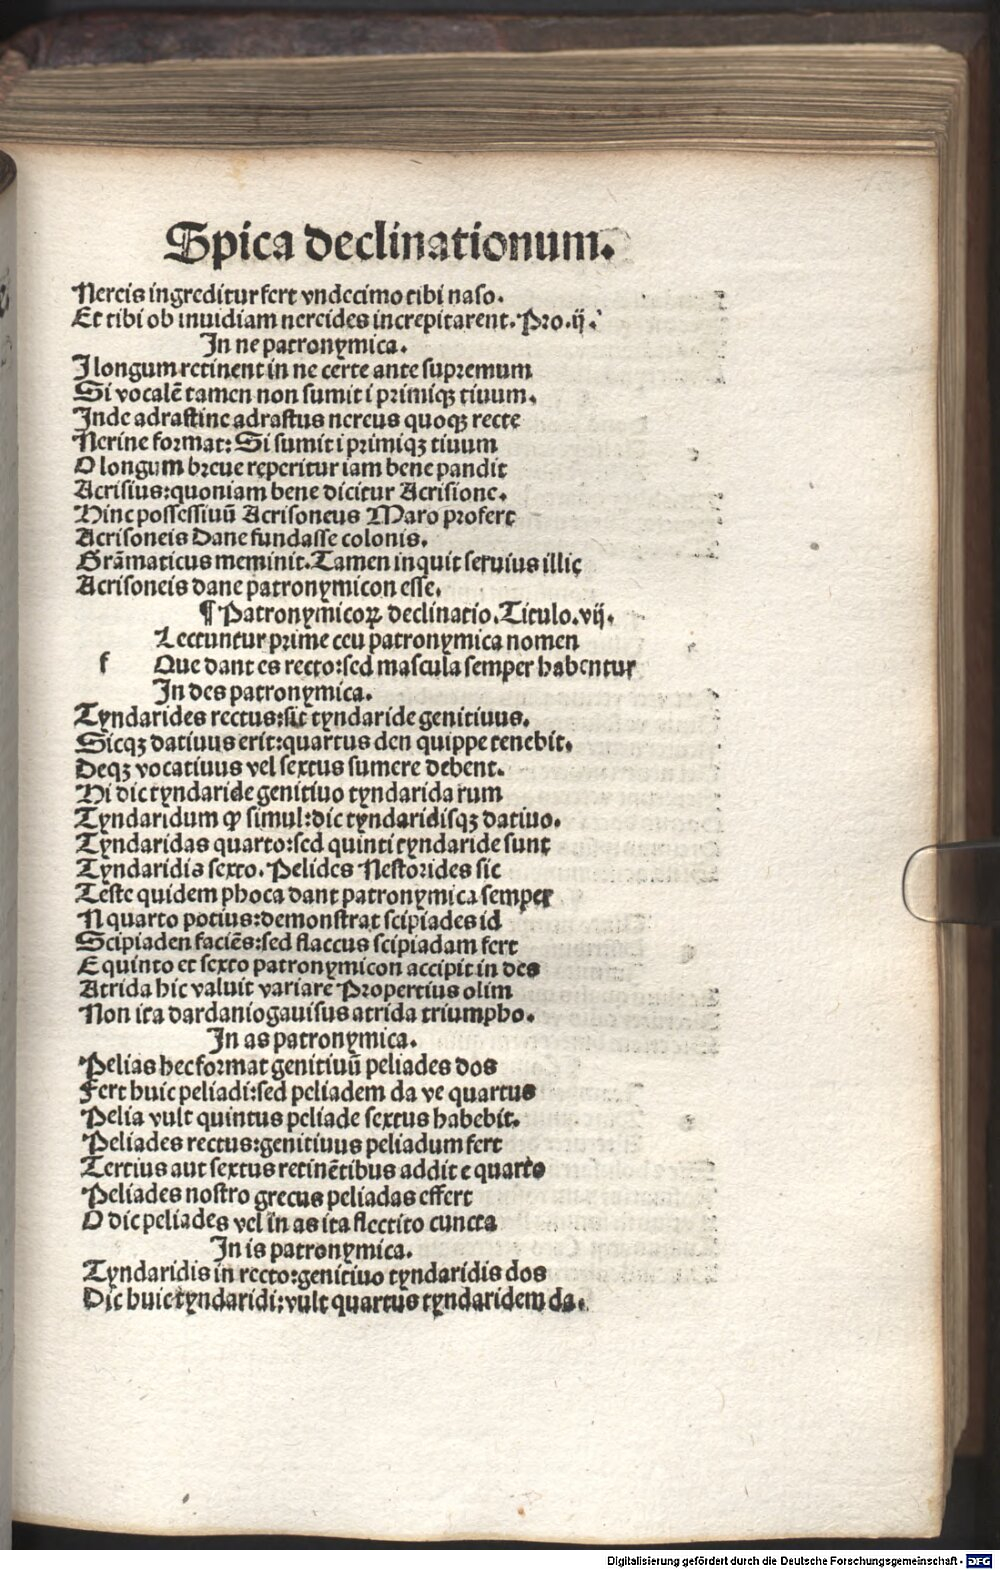 Spica declinationum.
Nereis ingreditur fert vndecimo tibi naso.
Et tibi ob inuidiam nereides increpitarent. Pro.ij.
In ne patronymica.
I longum retinent in ne certe ante supremum
Si vocalē tamen non sumit i primiqꝫ tiuum.
Inde adrastine adrastus nereus quoqꝫ recte
Nerine format: Si sumit i primiqꝫ tiuum
O longum breue reperitur iam bene pandit
Acrisius: quoniam bene dicitur Acrisione.
Hinc possessiuū Acrisoneus Maro profert
Acrisoneis Dane fundasse colonis.
Grāmaticus meminit. Tamen inquit seruius illic
Acrisoneis dane patronymicon esse.
¶ Patronymicoꝝ declinatio. Titulo.vij.
Lectuntur prime ceu patronymica nomen
f Que dant es recto: sed mascula semper habentur
In des patronymica.
Tyndarides rectus: sic tyndaride genitiuus.
Sicqꝫ datiuus erit: quartus den quippe tenebit.
Deqꝫ vocatiuus vel sextus sumere debent.
Hi dic tyndaride genitiuo tyndarida rum
Tyndaridum ꝙ simul: dic tyndaridisqꝫ datiuo.
Tyndaridas quarto: sed quinti tyndaride sunt
Tyndaridis sexto. Pelides Nestorides sic
Teste quidem phoca dant patronymica semper
N quarto potius: demonstrat scipiades id
Scipiaden faciēs: sed flaccus scipiadam fert
E quinto et sexto patronymicon accipit in des
Atrida hic valuit variare Propertius olim
Non ita dardanio gauisus atrida triumpho.
In as patronymica.
Pelias hec format genitiuū peliades dos
Fert huic peliadi: sed peliadem da ve quartus
Pelia vult quintus peliade sextus habebit.
Peliades rectus: genitiuus peliadum fert
Tertius aut sextus retinētibus addit e quarto
Peliades nostro grecus peliadas effert
O dic peliades vel in as ita flectito cuncta
In is patronymica.
Tyndaridis in recto: genitiuo tyndaridis dos
Dic huic tyndaridi: vult quartus tyndaridem da.
Digitalisierung gefördert durch die Deutsche Forschungsgemeinschaft - DFG